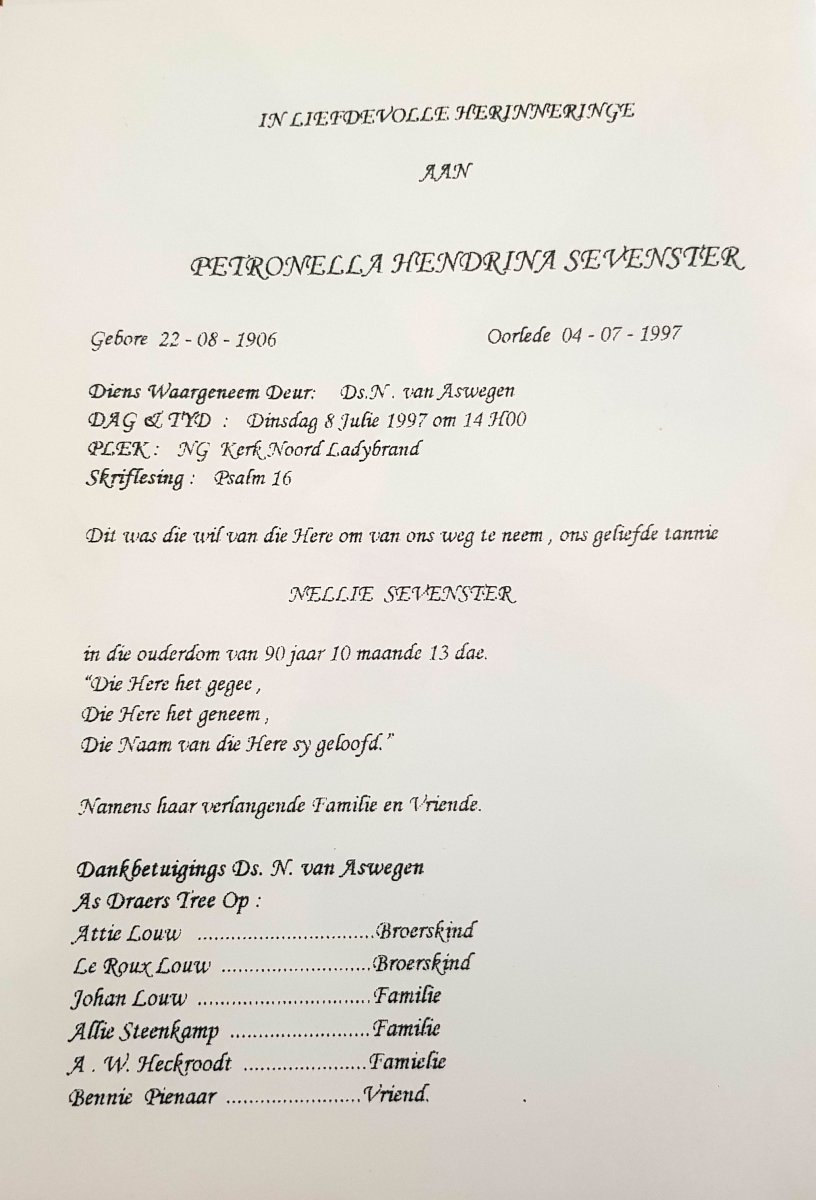 IN LIEFDEVOLLE HERINNERINGE
AAN
PETRONELLA HENDRINA SEVENSTER
Gebore 22 - 08 - 1906 Oorlede 04 - 07 - 1997
Diens Waargeneem Deur: Ds.N . van Aswegen
DAG & TYD : Dinsdag 8 Julie 1997 om 14 H00
PLEK : NG Kerk Noord Ladybrand
Skriflesing : Psalm 16
Dit was die wil van die Here om van ons weg te neem , ons geliefde tannie
NELLIE SEVENSTER
in die ouderdom van 90 jaar 10 maande 13 dae.
“Die Here het gegee ,
Die Here het geneem ,
Die Naam van die Here sy geloofd.”
Namens haar verlangende Familie en Vriende.
Dankbetuigings Ds. N. van Aswegen
As Draers Tree Op :
Attie Louw ................................Broerskind
Le Roux Louw ...........................Broerskind
Johan Louw ...............................Familie
Allie Steenkamp .........................Familie
A . W. Heckroodt .......................Famielie
Bennie Pienaar ........................Vriend.